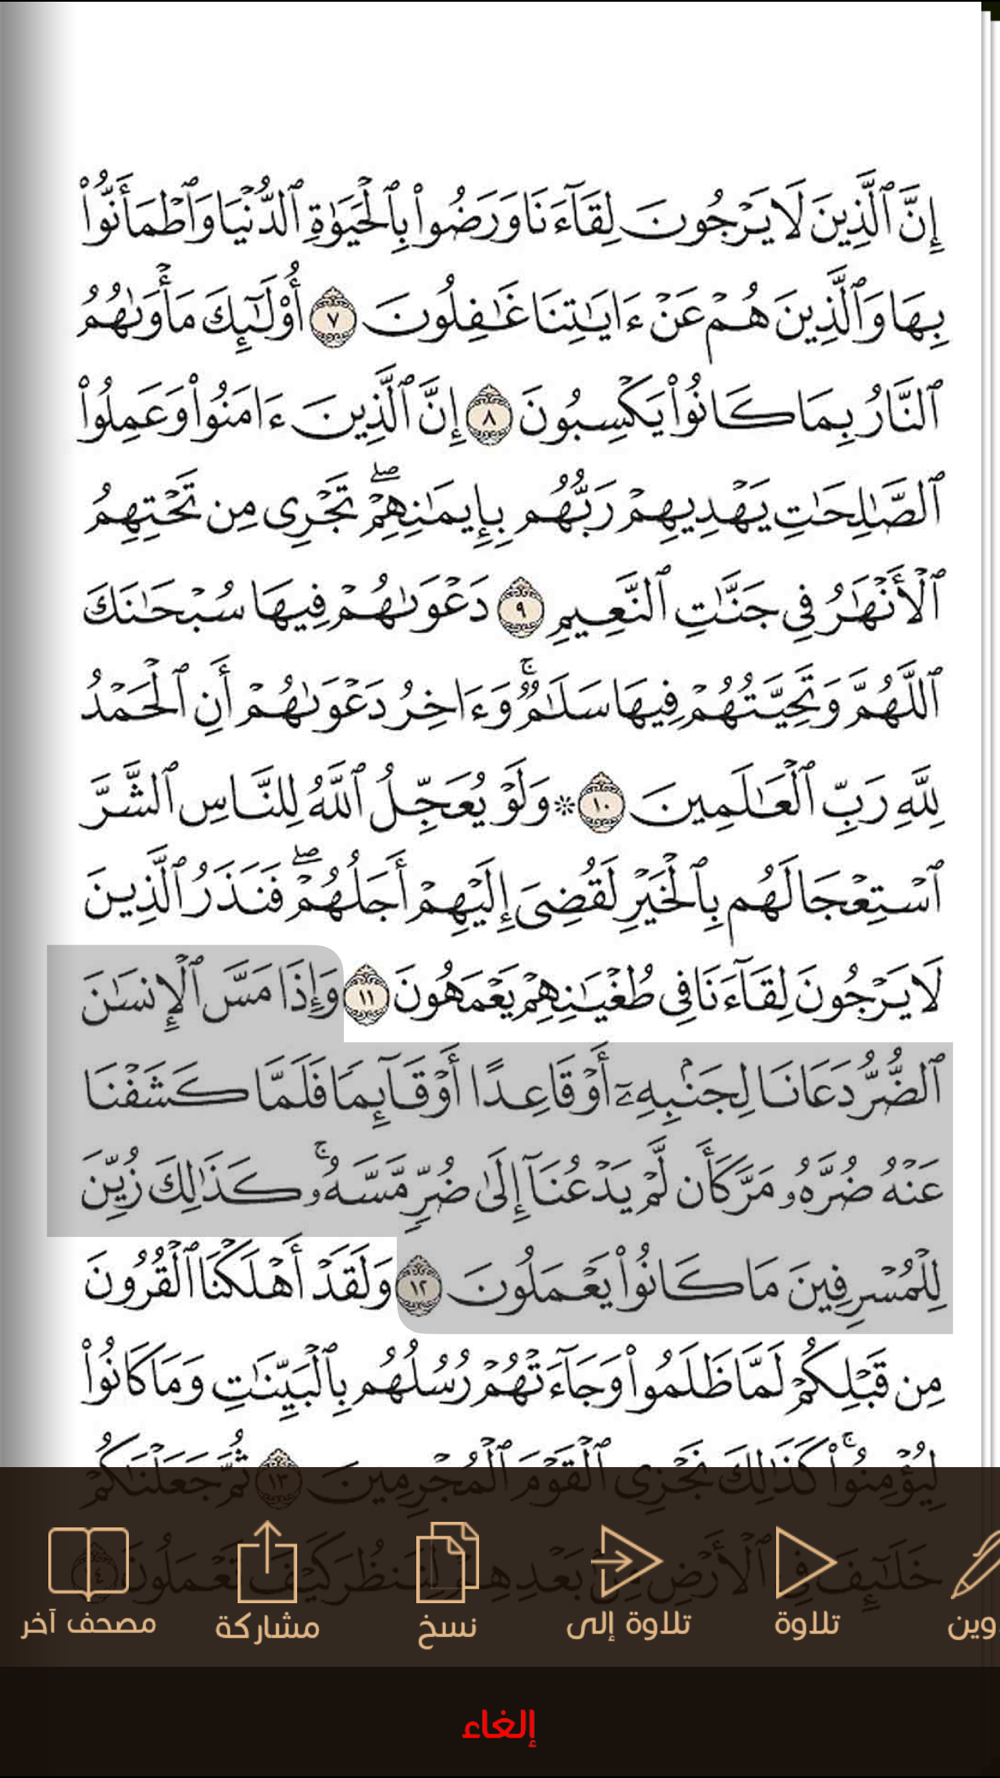 إِنَّ ٱلَّذِينَ لَا يَرْجُونَ لِقَآءَنَا وَرَضُوا۟ بِٱلْحَيَوٰةِ ٱلدُّنْيَا وَٱطْمَأَنُّوا۟
بِهَا وَٱلَّذِينَ هُمْ عَنْ ءَايَٰتِنَا غَٰفِلُونَ ٧ أُو۟لَٰٓئِكَ مَأْوَىٰهُمُ
ٱلنَّارُ بِمَا كَانُوا۟ يَكْسِبُونَ ٨ إِنَّ ٱلَّذِينَ ءَامَنُوا۟ وَعَمِلُوا۟
ٱلصَّٰلِحَٰتِ يَهْدِيهِمْ رَبُّهُم بِإِيمَٰنِهِمْ ۖ تَجْرِى مِن تَحْتِهِمُ
ٱلْأَنْهَٰرُ فِى جَنَّٰتِ ٱلنَّعِيمِ ٩ دَعْوَىٰهُمْ فِيهَا سُبْحَٰنَكَ
ٱللَّهُمَّ وَتَحِيَّتُهُمْ فِيهَا سَلَٰمٌ ۚ وَءَاخِرُ دَعْوَىٰهُمْ أَنِ ٱلْحَمْدُ
لِلَّهِ رَبِّ ٱلْعَٰلَمِينَ ١٠ ۞ وَلَوْ يُعَجِّلُ ٱللَّهُ لِلنَّاسِ ٱلشَّرَّ
ٱسْتِعْجَالَهُم بِٱلْخَيْرِ لَقُضِىَ إِلَيْهِمْ أَجَلُهُمْ ۖ فَنَذَرُ ٱلَّذِينَ
لَا يَرْجُونَ لِقَآءَنَا فِى طُغْيَٰنِهِمْ يَعْمَهُونَ ١١ وَإِذَا مَسَّ ٱلْإِنسَٰنَ
ٱلضُّرُّ دَعَانَا لِجَنۢبِهِۦٓ أَوْ قَاعِدًا أَوْ قَآئِمًا فَلَمَّا كَشَفْنَا
عَنْهُ ضُرَّهُۥ مَرَّ كَأَن لَّمْ يَدْعُنَآ إِلَىٰ ضُرٍّ مَّسَّهُۥ ۚ كَذَٰلِكَ زُيِّنَ
لِلْمُسْرِفِينَ مَا كَانُوا۟ يَعْمَلُونَ ١٢ وَلَقَدْ أَهْلَكْنَا ٱلْقُرُونَ
مِن قَبْلِكُمْ لَمَّا ظَلَمُوا۟ وَجَآءَتْهُمْ رُسُلُهُم بِٱلْبَيِّنَٰتِ وَمَا كَانُوا۟
لِيُؤْمِنُوا۟ ۚ كَذَٰلِكَ نَجْزِى ٱلْقَوْمَ ٱلْمُجْرِمِينَ ١٣ ثُمَّ جَعَلْنَٰكُمْ
خَلَٰٓئِفَ فِى ٱلْأَرْضِ مِنۢ بَعْدِهِمْ لِنَنظُرَ كَيْفَ تَعْمَلُونَ ١٤
وين تلاوة تلاوة إلى نسخ مشاركة مصحف آخر
إلغاء